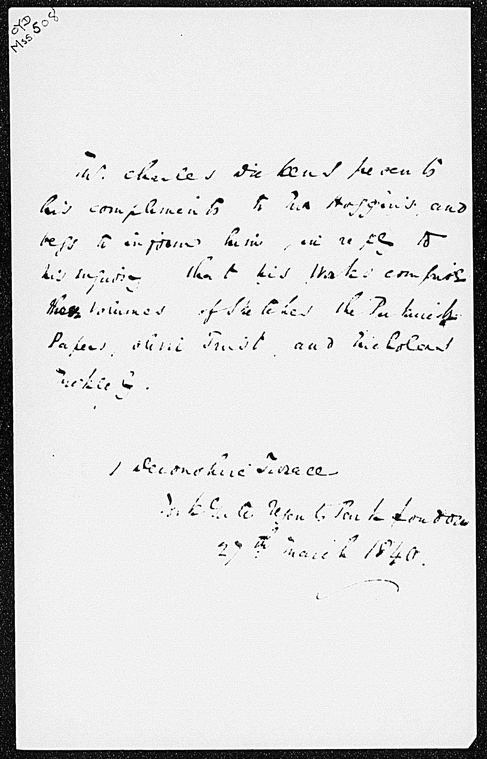 OYD
Mss 508
Mr. Charles Dickens presents
his compliments to Mr Hoggins, and
begs to inform him, in reply to
his inquiry, that his works comprise
three volumes of Sketches the Pickwick
Papers, Oliver Twist, and Nicholas
Nickleby.
1 Devonshire Terrace
York Gate Regents Park London
27th March 1840.